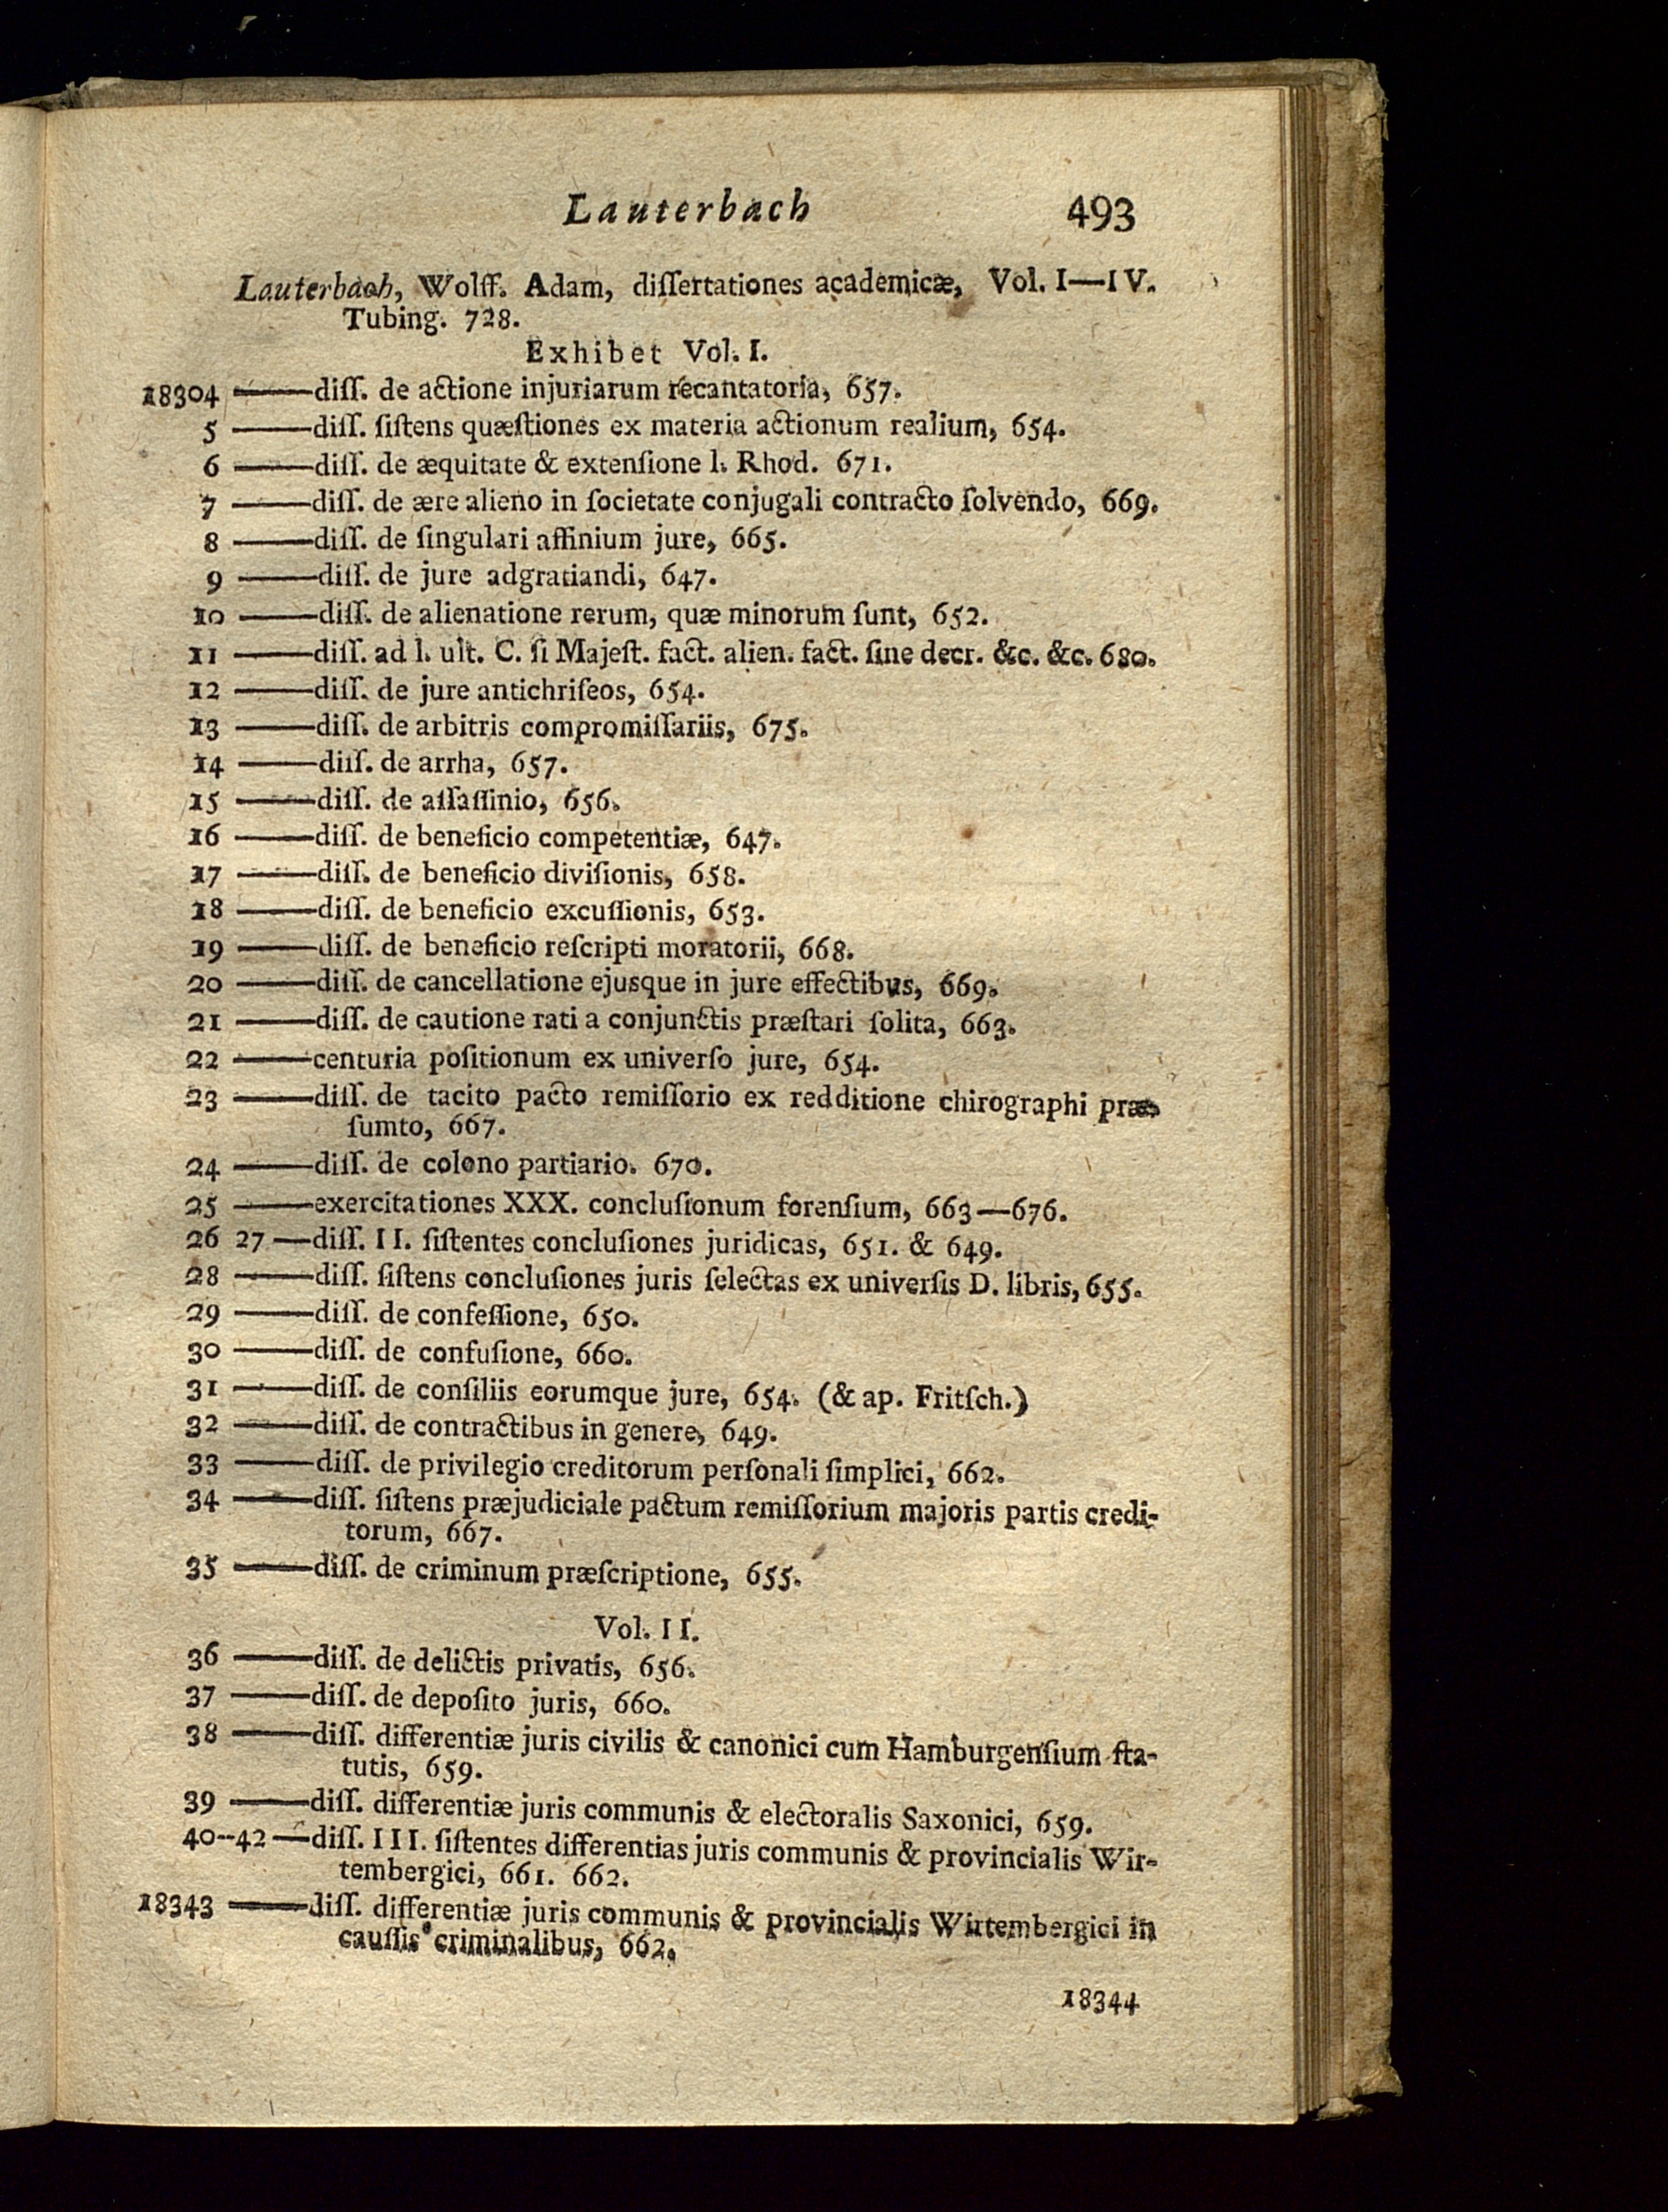 Lauterbach 493
Lauterbach, Wolff. Adam, diſſertationes academicæ, Vol. I—IV.
Tubing. 728.
Exhibet Vol. I.
18304 ——diſſ. de actione injuriarum recantatoria, 657.
5 ——diſſ. ſiſtens quæſtiones ex materia actionum realium, 654.
6 ——diſſ. de æquitate & extenſione l. Rhod. 671.
7 ——diſſ. de ære alieno in ſocietate conjugali contracto ſolvendo, 669.
8 ——diſſ. de ſingulari affinium jure, 665.
9 ——diſſ. de jure adgratiandi, 647.
10 ——diſſ. de alienatione rerum, quæ minorum ſunt, 652.
11 ——diſſ. ad l. ult. C. ſi Majeſt. fact. alien. fact. ſine decr. &c. &c. 680.
12 ——diſſ. de jure antichriſeos, 654.
13 ——diſſ. de arbitris compromiſſariis, 675.
14 ——diſſ. de arrha, 657.
15 ——diſſ. de aſſaſſinio, 656.
16 ——diſſ. de beneficio competentiæ, 647.
17 ——diſſ. de beneficio diviſionis, 658.
18 ——diſſ. de beneficio excuſſionis, 653.
19 ——diſſ. de beneficio reſcripti moratorii, 668.
20 ——diſſ. de cancellatione ejusque in jure effectibus, 669.
21 ——diſſ. de cautione rati a conjunctis præſtari ſolita, 663.
22 ——centuria poſitionum ex univerſo jure, 654.
23 ——diſſ. de tacito pacto remiſſorio ex redditione chirographi præ-
ſumto, 667.
24 ——diſſ. de colono partiario. 670.
25 ——exercitationes XXX. concluſionum forenſium, 663—676.
26 27 —diſſ. II. ſiſtentes concluſiones juridicas, 651. & 649.
28 ——diſſ. ſiſtens concluſiones juris ſelectas ex univerſis D. libris, 655.
29 ——diſſ. de confeſſione, 650.
30 ——diſſ. de confuſione, 660.
31 ——diſſ. de conſiliis eorumque jure, 654. (& ap. Fritſch.)
32 ——diſſ. de contractibus in genere, 649.
33 ——diſſ. de privilegio creditorum perſonali ſimplici, 662.
34 ——diſſ. ſiſtens præjudiciale pactum remiſſorium majoris partis credi-
torum, 667.
35 ——diſſ. de criminum præſcriptione, 655.
Vol. II.
36 ——diſſ. de delictis privatis, 656.
37 ——diſſ. de depoſito juris, 660.
38 ——diſſ. differentiæ juris civilis & canonici cum Hamburgenſium ſta-
tutis, 659.
39 ——diſſ. differentiæ juris communis & electoralis Saxonici, 659.
40--42 —diſſ. III. ſiſtentes differentias juris communis & provincialis Wir-
tembergici, 661. 662.
18343 ——diſſ. differentiæ juris communis & provincialis Wirtembergici in
cauſſis criminalibus, 662.
18344